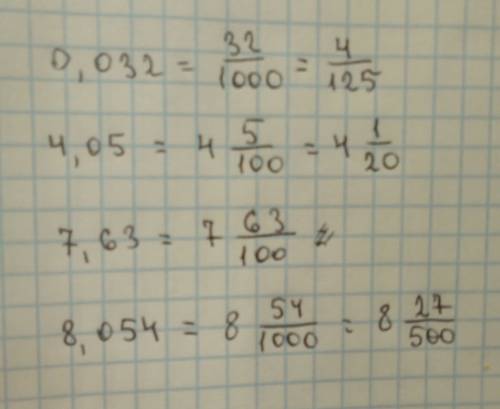 0,032 = 32/1000 = 4/125
4,05 = 4 5/100 = 4 1/20
7,63 = 7 63/100
8,054 = 8 54/1000 = 8 27/500